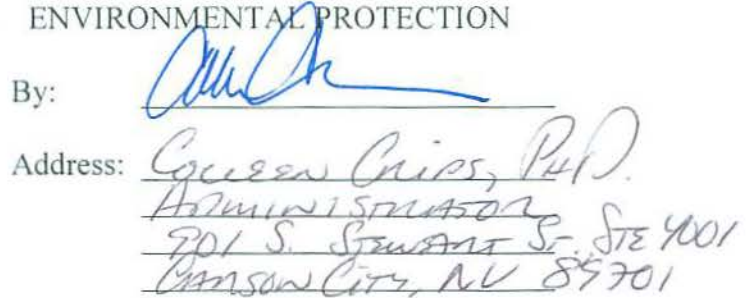 ENVIRONMENTAL PROTECTION
By:
Address: Colleen Cripps, PHD.
ADMINISTRATOR
901 S. STEWART ST. STE 4001
CARSON CITY, NV 89701